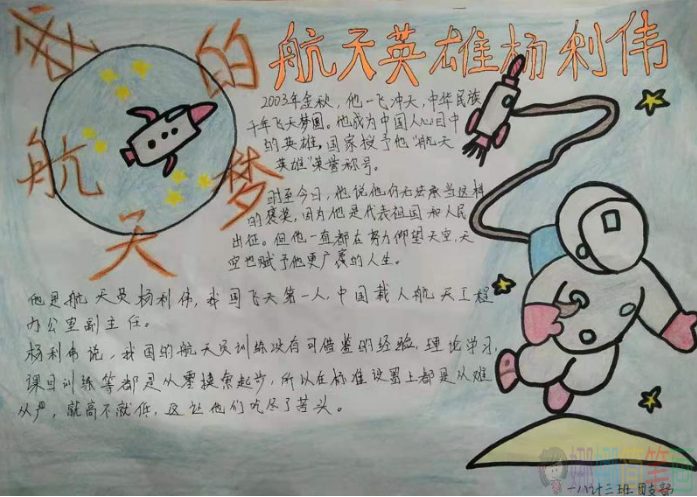 我的航天梦
航天英雄杨利伟
2003年金秋，他一飞冲天，中华民族
千年飞天梦圆。他成为中国人心目中
的英雄，国家授予他“航天
英雄”荣誉称号。
时至今日，他说他仍无法承当这样
的褒奖，因为他是代表祖国和人民
出征。但他一直都在努力仰望天空，天
空也赋予他更广袤的人生。
他是航天员杨利伟，我国飞天第一人，中国载人航天工程
办公室副主任。
杨利伟说，我国的航天员训练没有可借鉴的经验，理论学习，
课目训练等都是从零摸索起步，所以在标准设置上都是从难
从严，就高不就低，这让他们吃尽了苦头。